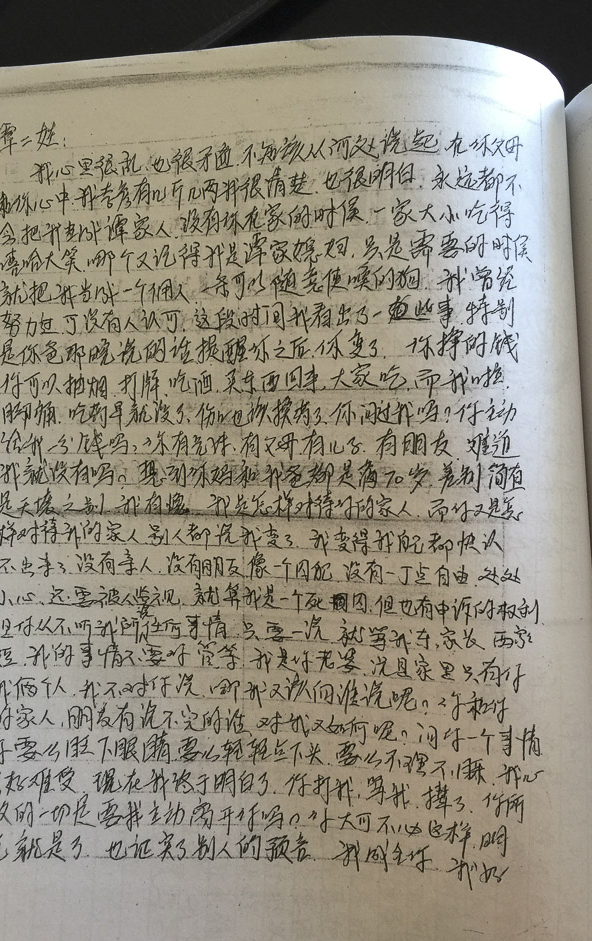 谭二姓:
我心里很乱,也很矛盾,不知该从何处说起,在你父母
和你心中,我老秀有几斤几两我很清楚,也很明白,永远都不
会把我当成谭家人,没有你在家的时候,一家大小吃得
嘻哈大笑,哪个又记得我是谭家媳妇,只是需要的时候
就把我当成一个佣人,一条可以随意使唤的狗,我曾经
努力过,可没有人认可,这段时间我看出了一些事,特别
是你爸那晚说的谁提醒你之后,你变了,你挣的钱
你可以抽烟,打牌,吃酒,买东西回来,大家吃,而我
脚痛,吃药早就没了,伤口也该换药了,你问过我吗?你主动
给我一分钱吗?你有兄妹,有父母有儿子,有朋友,难道
我就没有吗?想到你妈和我爸都是满70岁,差别简直
是天壤之别,我有愧,我是怎样对待你的家人,而你又是怎
样对待我的家人,别人都说我变了,我变得我自己都快认
不出来了,没有亲人,没有朋友,像一个囚犯,没有一丁点自由,处处
小心,还要被人监视,就算我是一个死囚,但也有申诉的权利
但你从不听我所任何事情,只要一说,就算我东家长西家
短,我的事情不要你管等,我是你老婆,况且家里只有你
我俩个人,我不对你说,哪我又该向谁说呢?你和你
的家人,朋友有说不完的话,对我又如何呢?问你一个事情
你要么眨下眼睛,要么轻轻点下头,要么不理不睬,我心
好难受,现在我终于明白了,你打我,骂我,撵了,你所
的一切是要我主动离开你吗?你大可不必这样,明
就是了,也证实了别人的预言,我成全你,我好